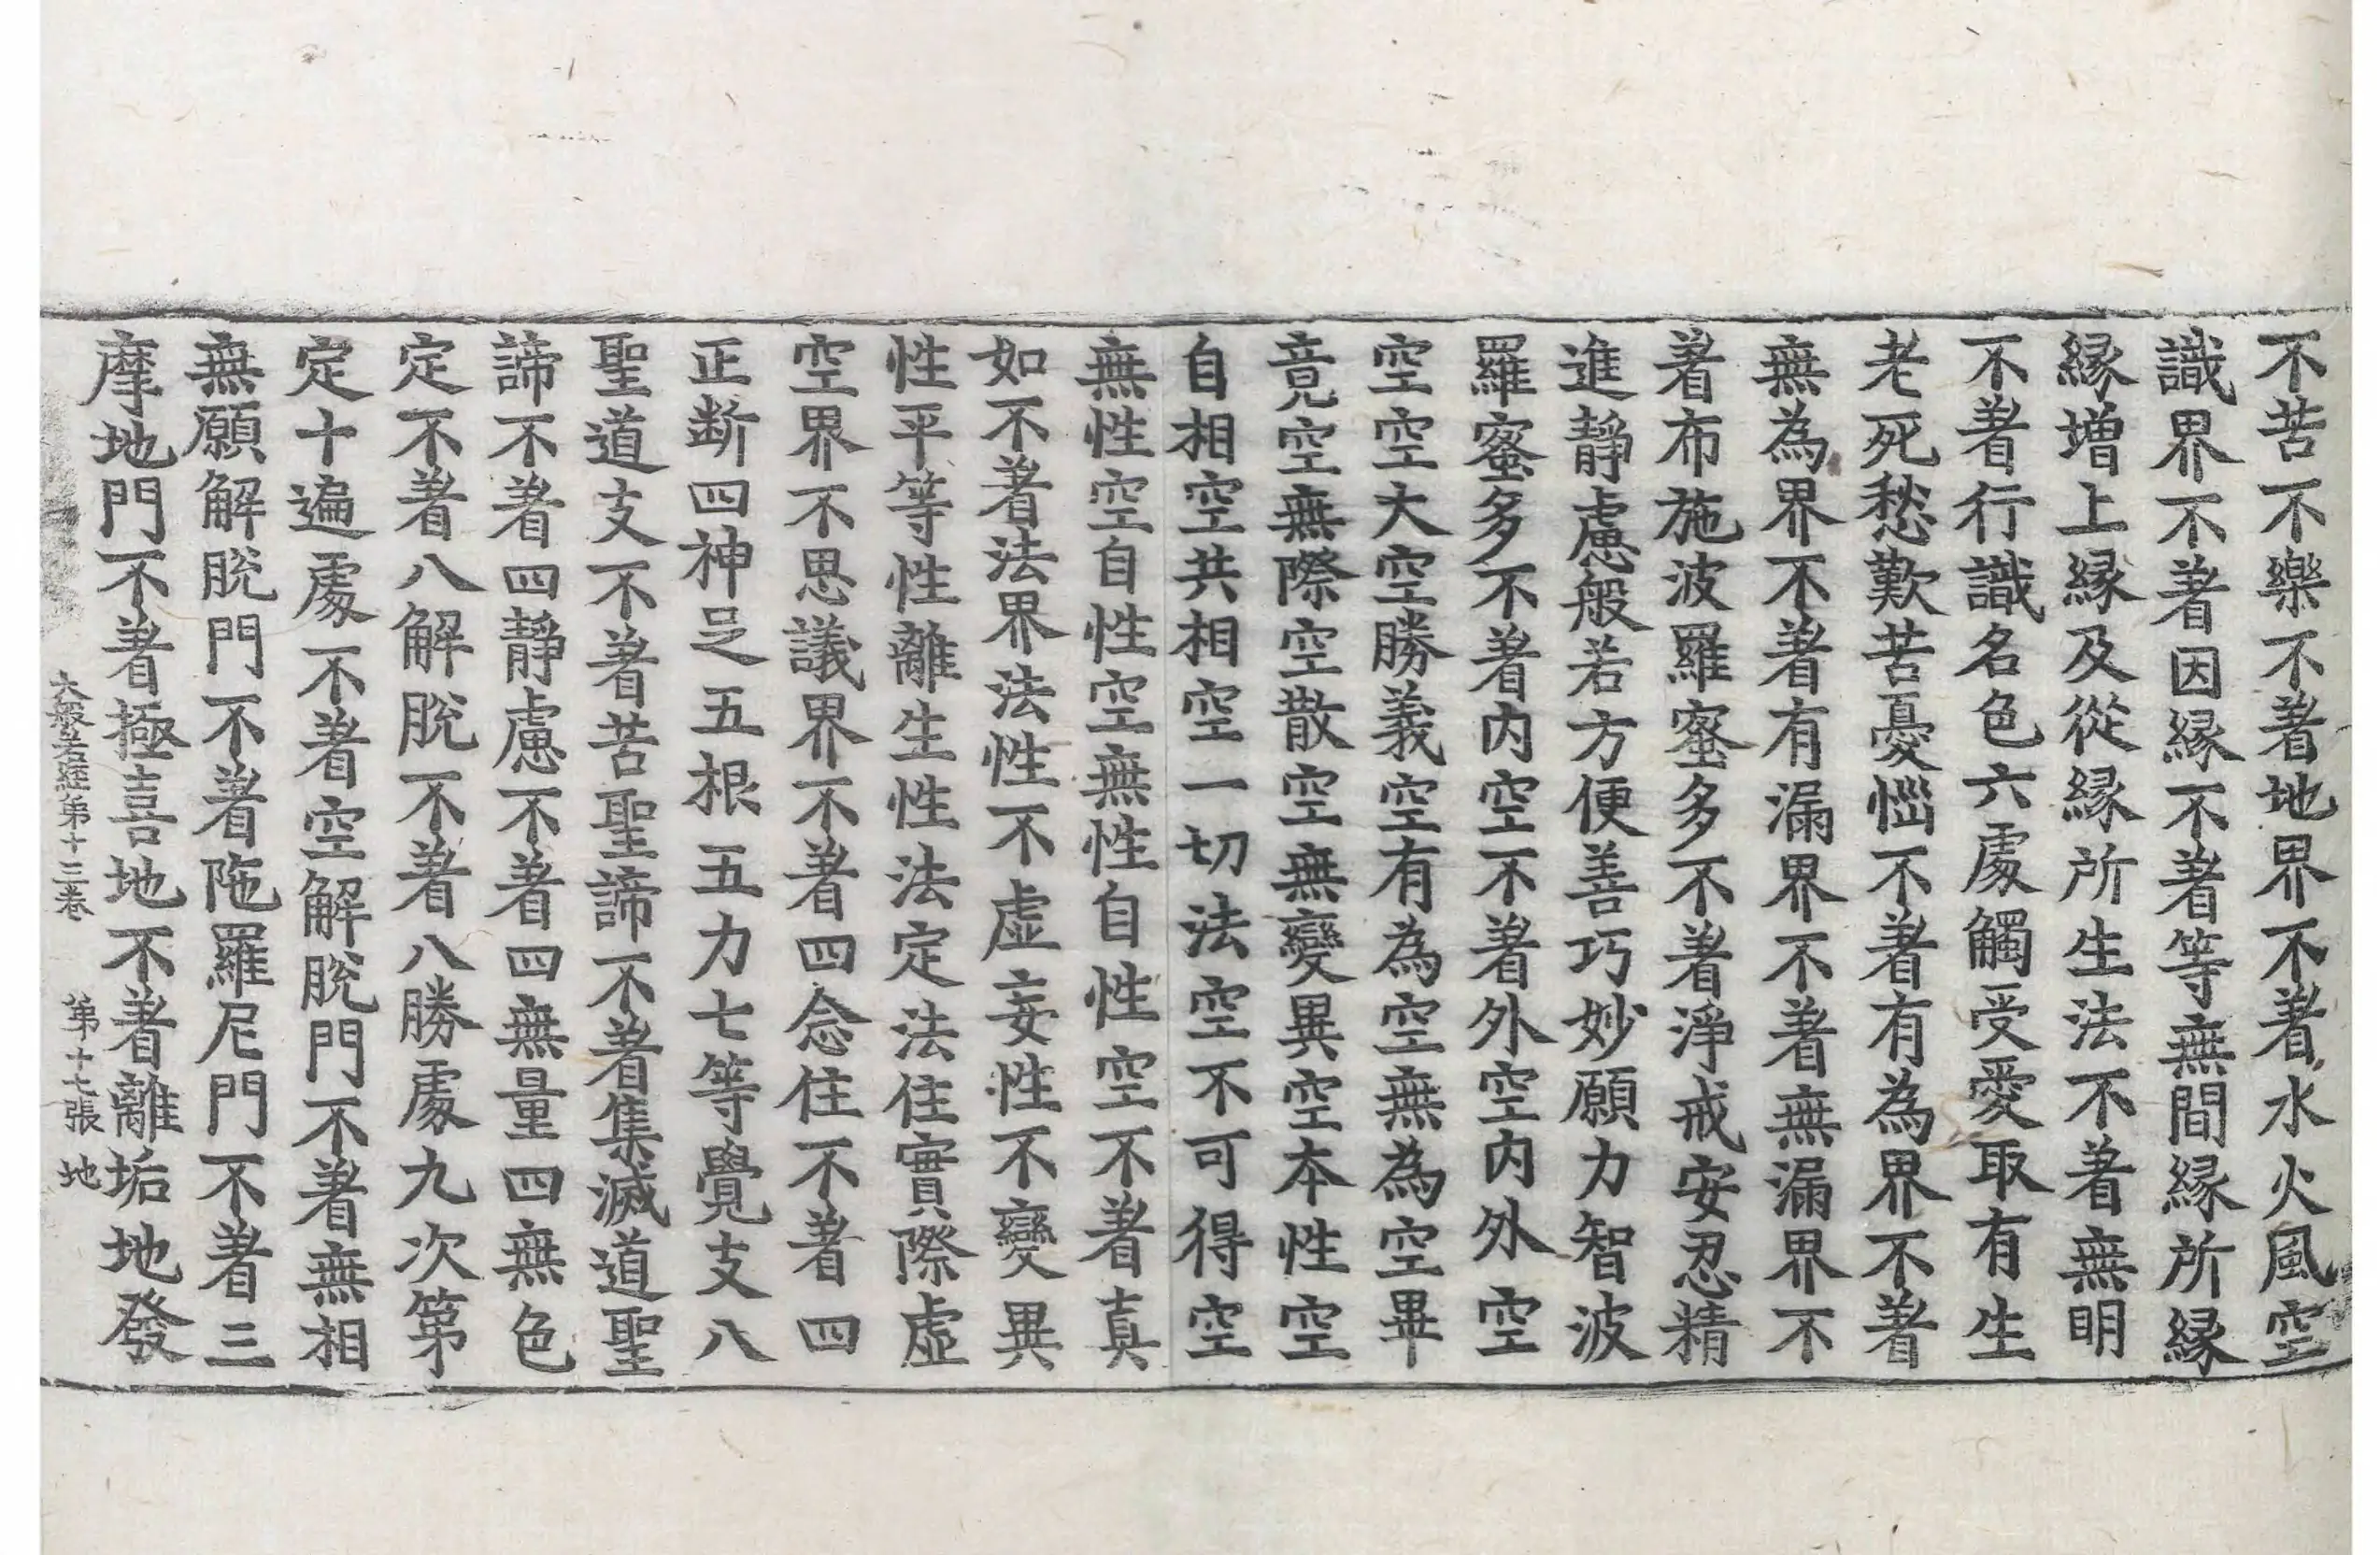 不苦不樂不著地界不著水火風空
識界不著因縁不著等無間縁所縁
縁增上縁及從縁所生法不著無明
不著行識名色六處觸受愛取有生
老死愁歎苦憂惱不著有為界不著
無為界不著有漏界不著無漏界不
著布施波羅蜜多不著淨戒安忍精
進靜慮般若方便善巧妙願力智波
羅蜜多不著内空不著外空内外空
空空大空勝義空有為空無為空畢
竟空無際空散空無變異空本性空
自相空共相空一切法空不可得空
無性空自性空無性自性空不著真
如不著法界法性不虛妄性不變異
性平等性離生性法定法住實際虛
空界不思議界不著四念住不著四
正斷四神足五根五力七等覺支八
聖道支不著苦聖諦不著集滅道聖
諦不著四靜慮不著四無量四無色
定不著八解脫不著八勝處九次第
定十遍處不著空解脫門不著無相
無願解脫門不著陁羅尼門不著三
摩地門不著極喜地不著離垢地發
大般若經第十三卷 第十七張 地